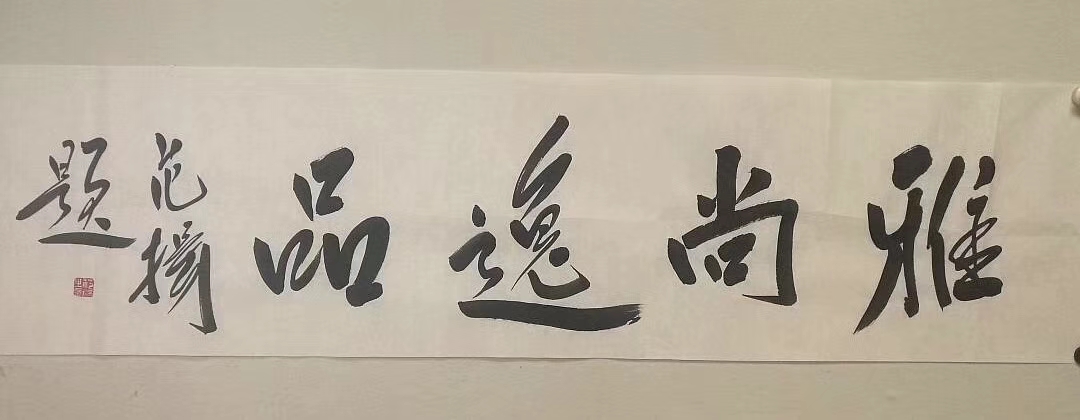 雅尚逸品
范揚
题